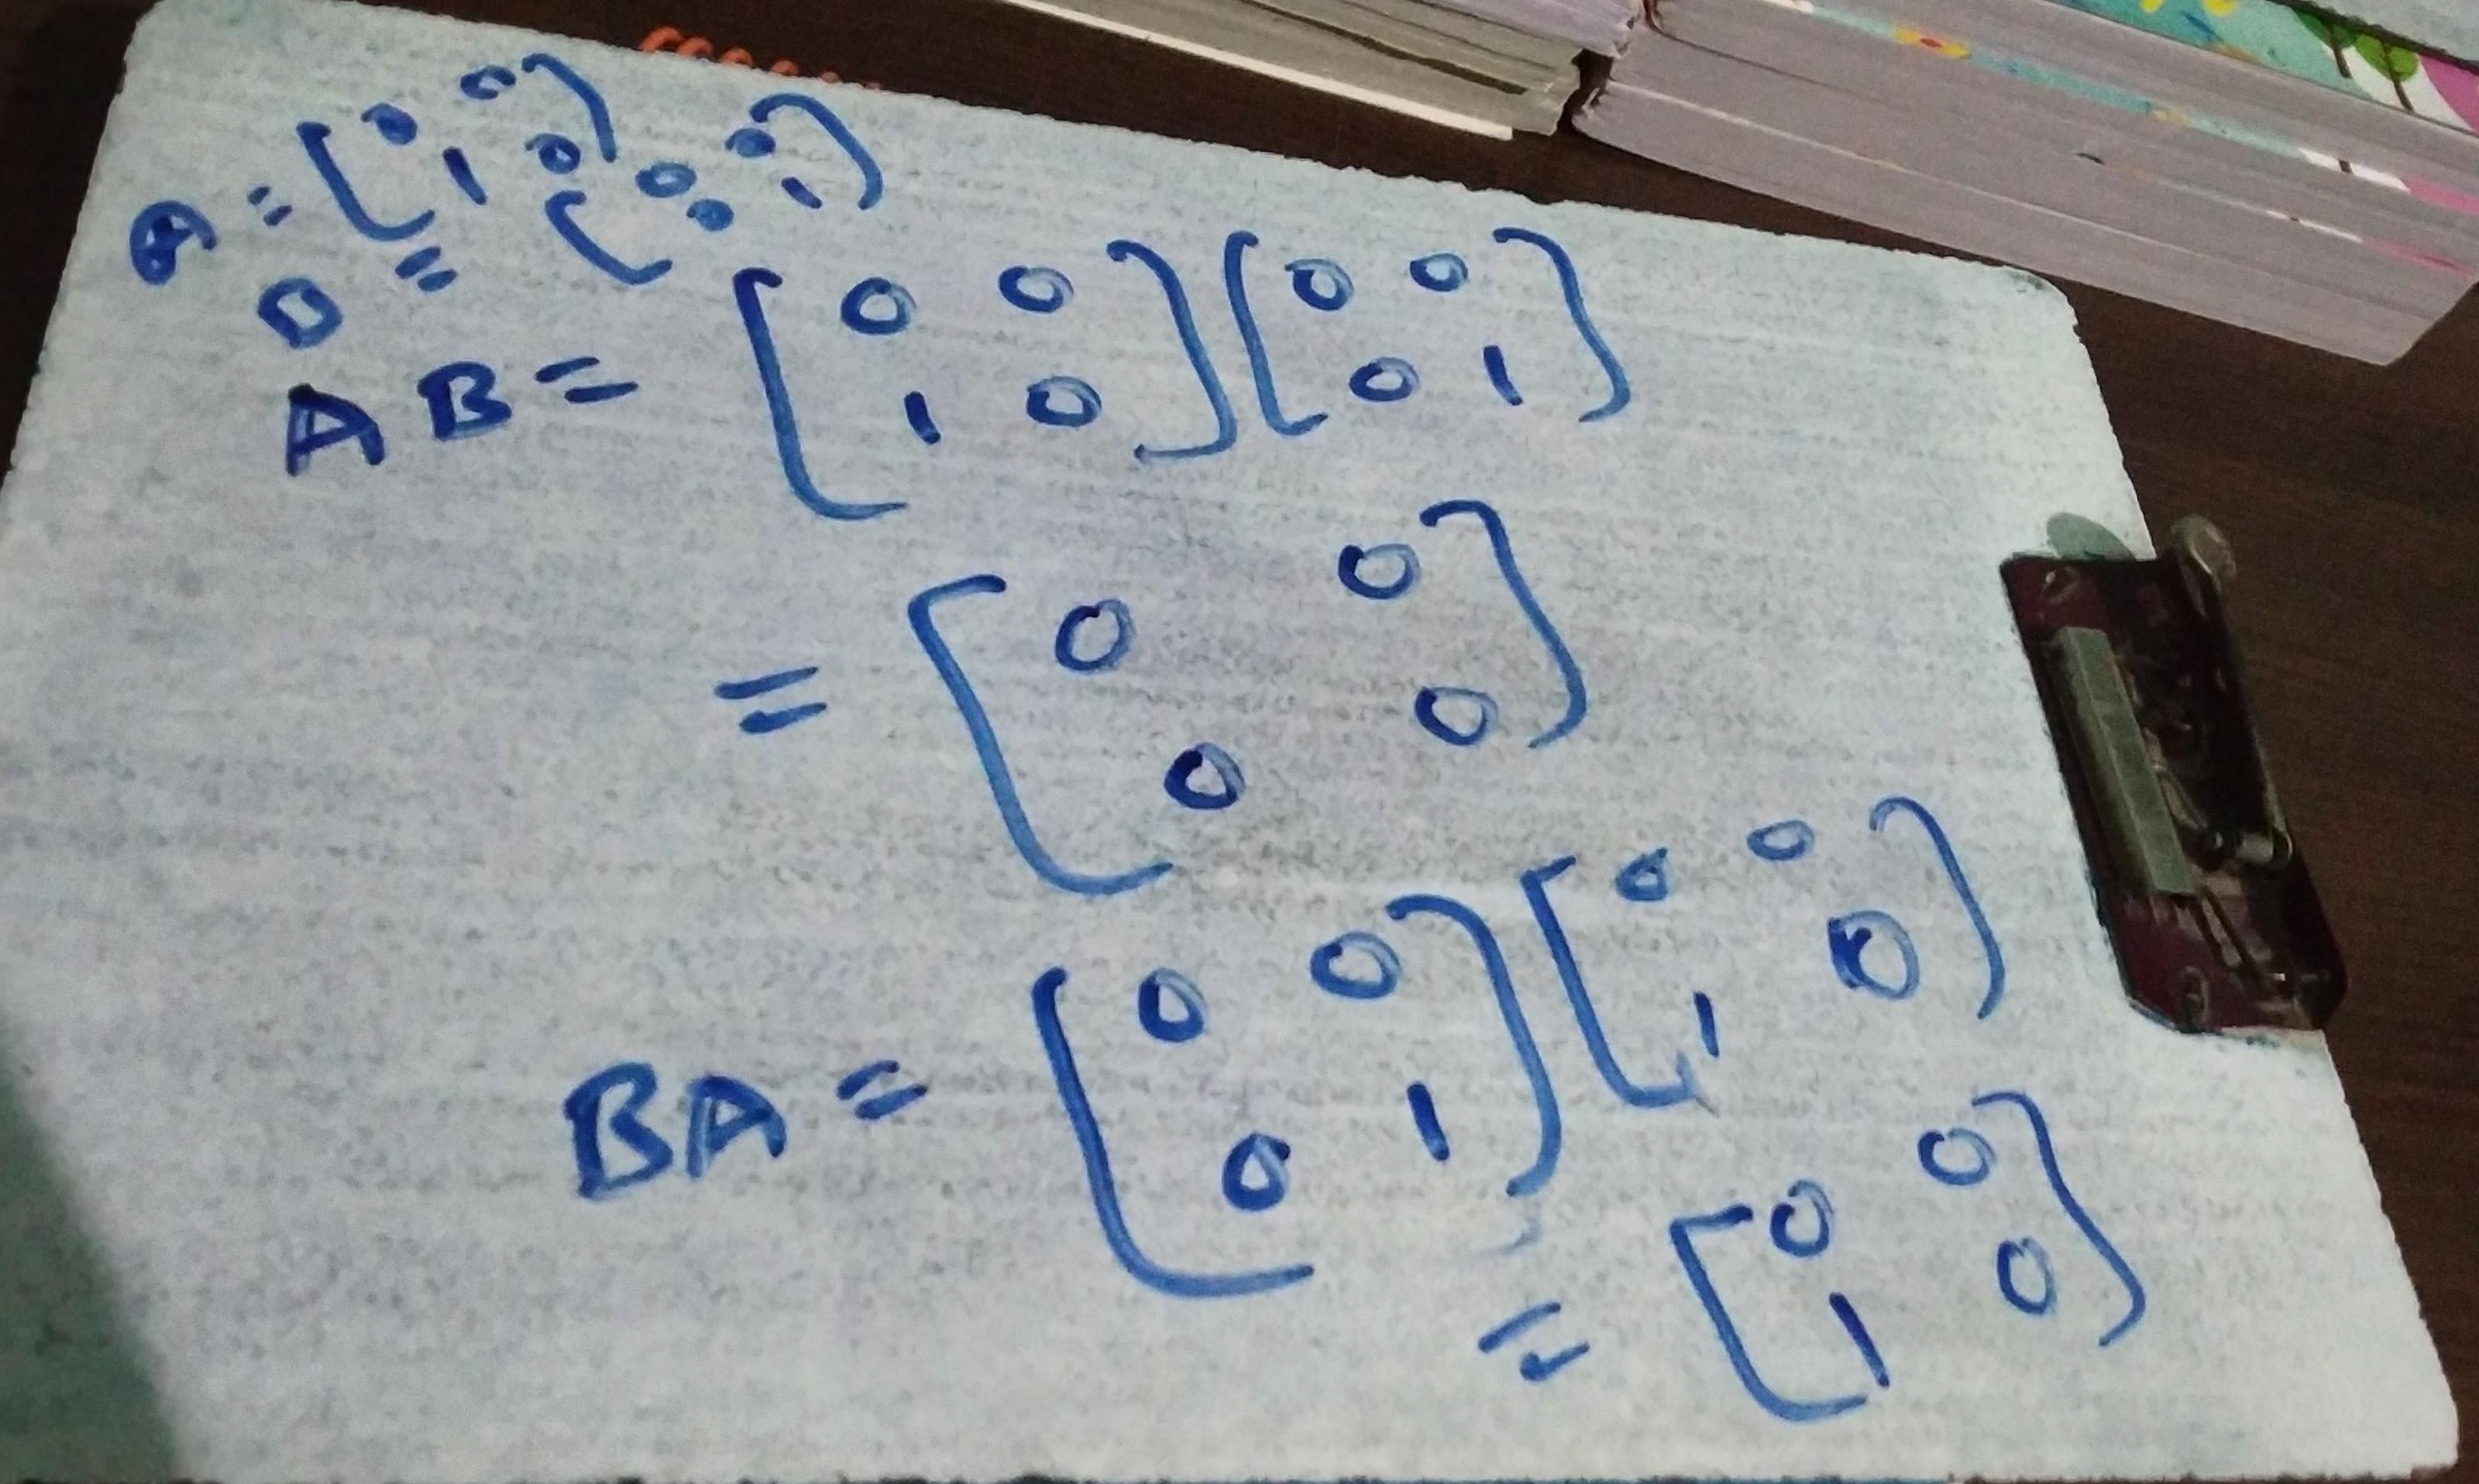 A = [0 0
1 0]
D = [0 0
0 1]
AB = [0 0
1 0] [0 0
0 1]
= [0 0
0 0]
BA = [0 0
0 1] [0 0
1 0]
= [0 0
1 0]